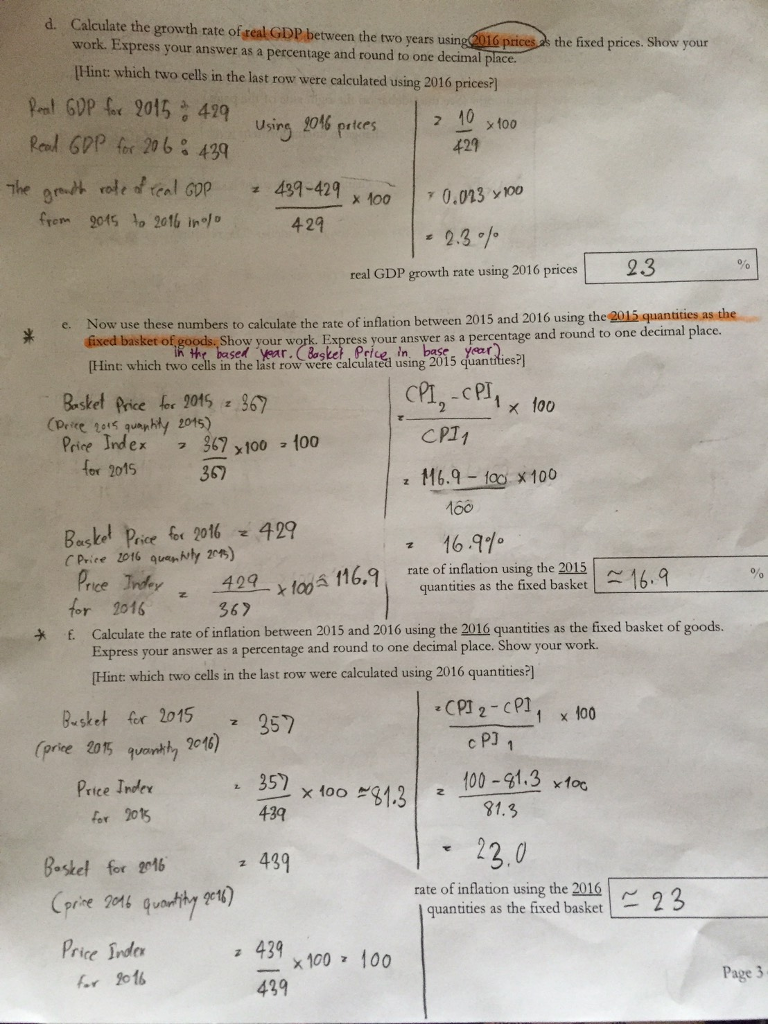 d. Calculate the growth rate of real GDP between the two years using 2016 prices as the fixed prices. Show your
work. Express your answer as a percentage and round to one decimal place.
[Hint: which two cells in the last row were calculated using 2016 prices?]
Real GDP for 2015 : 429
Real GDP for 206 : 439
Using 2016 prices
The growth rate of real GDP
from 2015 to 2016 in %
= 439-429 × 100
429
= 10 × 100
429
= 0.023 × 100
= 2.3 %
real GDP growth rate using 2016 prices 2.3 %
* e. Now use these numbers to calculate the rate of inflation between 2015 and 2016 using the 2015 quantities as the
fixed basket of goods. Show your work. Express your answer as a percentage and round to one decimal place.
in the based year. (Basket Price in base year).
[Hint: which two cells in the last row were calculated using 2015 quantities?]
Basket Price for 2015 = 367
(Price 2015 quantity 2015)
Price Index = 367 × 100 = 100
for 2015 367
Basket Price for 2016 = 429
(Price 2016 quantity 2015)
Price Index = 429 × 100 ≈ 116.9
for 2016 367
= CPI2 - CPI1 × 100
CPI1
= 116.9 - 100 × 100
100
= 16.9%
rate of inflation using the 2015
quantities as the fixed basket ≃ 16.9 %
* f. Calculate the rate of inflation between 2015 and 2016 using the 2016 quantities as the fixed basket of goods.
Express your answer as a percentage and round to one decimal place. Show your work.
[Hint: which two cells in the last row were calculated using 2016 quantities?]
Basket for 2015 = 357
(price 2015 quantity 2016)
Price Index = 357 × 100 ≈ 81.3
for 2015 439
Basket for 2016 = 439
(price 2016 quantity 2016)
Price Index = 439 × 100 = 100
for 2016 439
= CPI2 - CPI1 × 100
CPI1
= 100 - 81.3 × 100
81.3
= 23.0
rate of inflation using the 2016
quantities as the fixed basket ≃ 23
Page 3